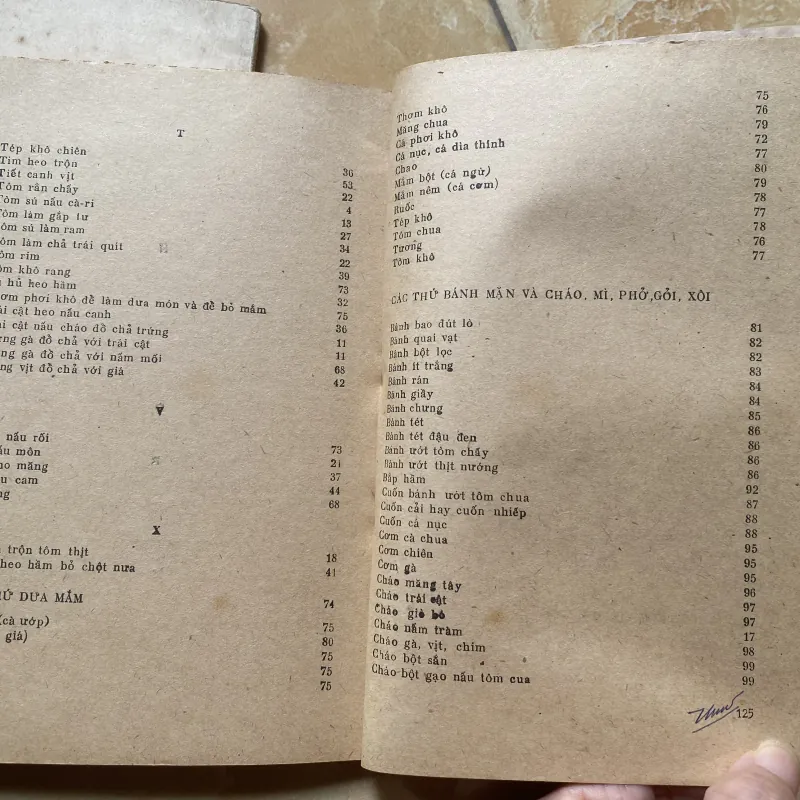 T
Tép khô chiên
Tim heo trộn
Tiết canh vịt 36
Tôm rằn chấy 53
Tôm sú nấu cà-ri 22
Tôm làm gắp tư 4
Tôm sú làm ram 13
Tôm làm chả trái quít 27
Tôm rim 34
Tôm khô rang 22
hủ heo hăm 39
ơm phơi khô để làm dưa món và để bỏ mắm 73
cật heo nấu canh 32
cật nấu cháo đồ chả trứng 75
ng gà đồ chả với trái cật 36
ng gà đồ chả với nấm mối 11
ng vịt đồ chả với giá 11
68
42
V
nấu rối
ấu môn 73
ho măng 21
u cam 37
ng 44
68
X
trộn tôm thịt
heo hăm bỏ chột nưa 18
41
Ứ DƯA MẮM
74
(cà ướp) 75
giá) 80
75
75
75
75
Thơm khô 76
Măng chua 79
Cá phơi khô 72
Cá nục, cá dìa thính 77
Chao 80
Mắm bột (cá ngừ) 79
Mắm nêm (cá cơm) 78
Ruốc 77
Tép khô 78
Tôm chua 76
Tương 77
Tôm khô
CÁC THỨ BÁNH MẶN VÀ CHÁO, MÌ, PHỞ, GỎI, XÔI
Bánh bao đút lò 81
Bánh quai vạt 82
Bánh bột lọc 82
Bánh ít trắng 83
Bánh rán 84
Bánh giầy 84
Bánh chưng 85
Bánh tét 86
Bánh tét đậu đen 86
Bánh ướt tôm chấy 86
Bánh ướt thịt nướng 86
Bắp hầm 92
Cuốn bánh ướt tôm chua 87
Cuốn cải hay cuốn nhiếp 88
Cuốn cá nục 88
Cơm cà chua 95
Cơm chiên 95
Cơm gà 95
Cháo măng tây 96
Cháo trái cật 97
Cháo giò bò 97
Cháo nấm tràm 17
Cháo gà, vịt, chim 98
Cháo bột sắn 99
Cháo bột gạo nấu tôm cua 99
125